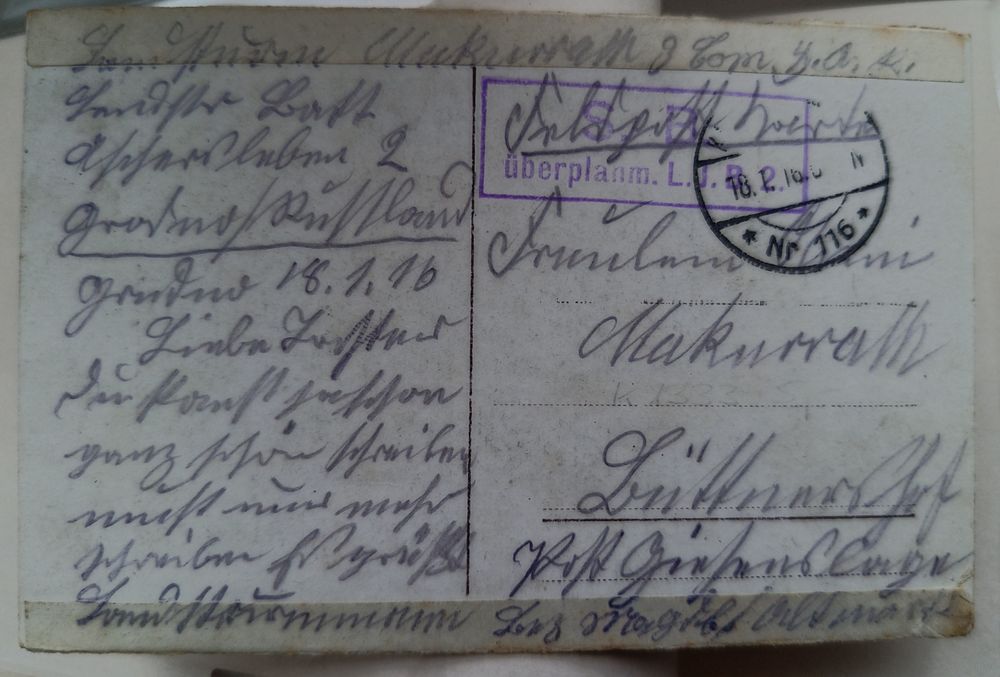 Landsturm Makurrath 3 Com. Z. A. K.
Landstr Batt
Aschersleben 2
Grodno/Russland
Grodno 18.1.16
Liebe Tochter
du kanst ja schon
ganz schön schreiben
must nur mehr
schreiben Es grüßt
Landsturmmann
S. B.
überplanm. L.J.B. 2.
Feldpost Karte
18.1.16. N
* Nr. 116 *
Fräulein
Makurrath
Büttnershof
Post Giesenslage
Bez Magdeb/Altmark